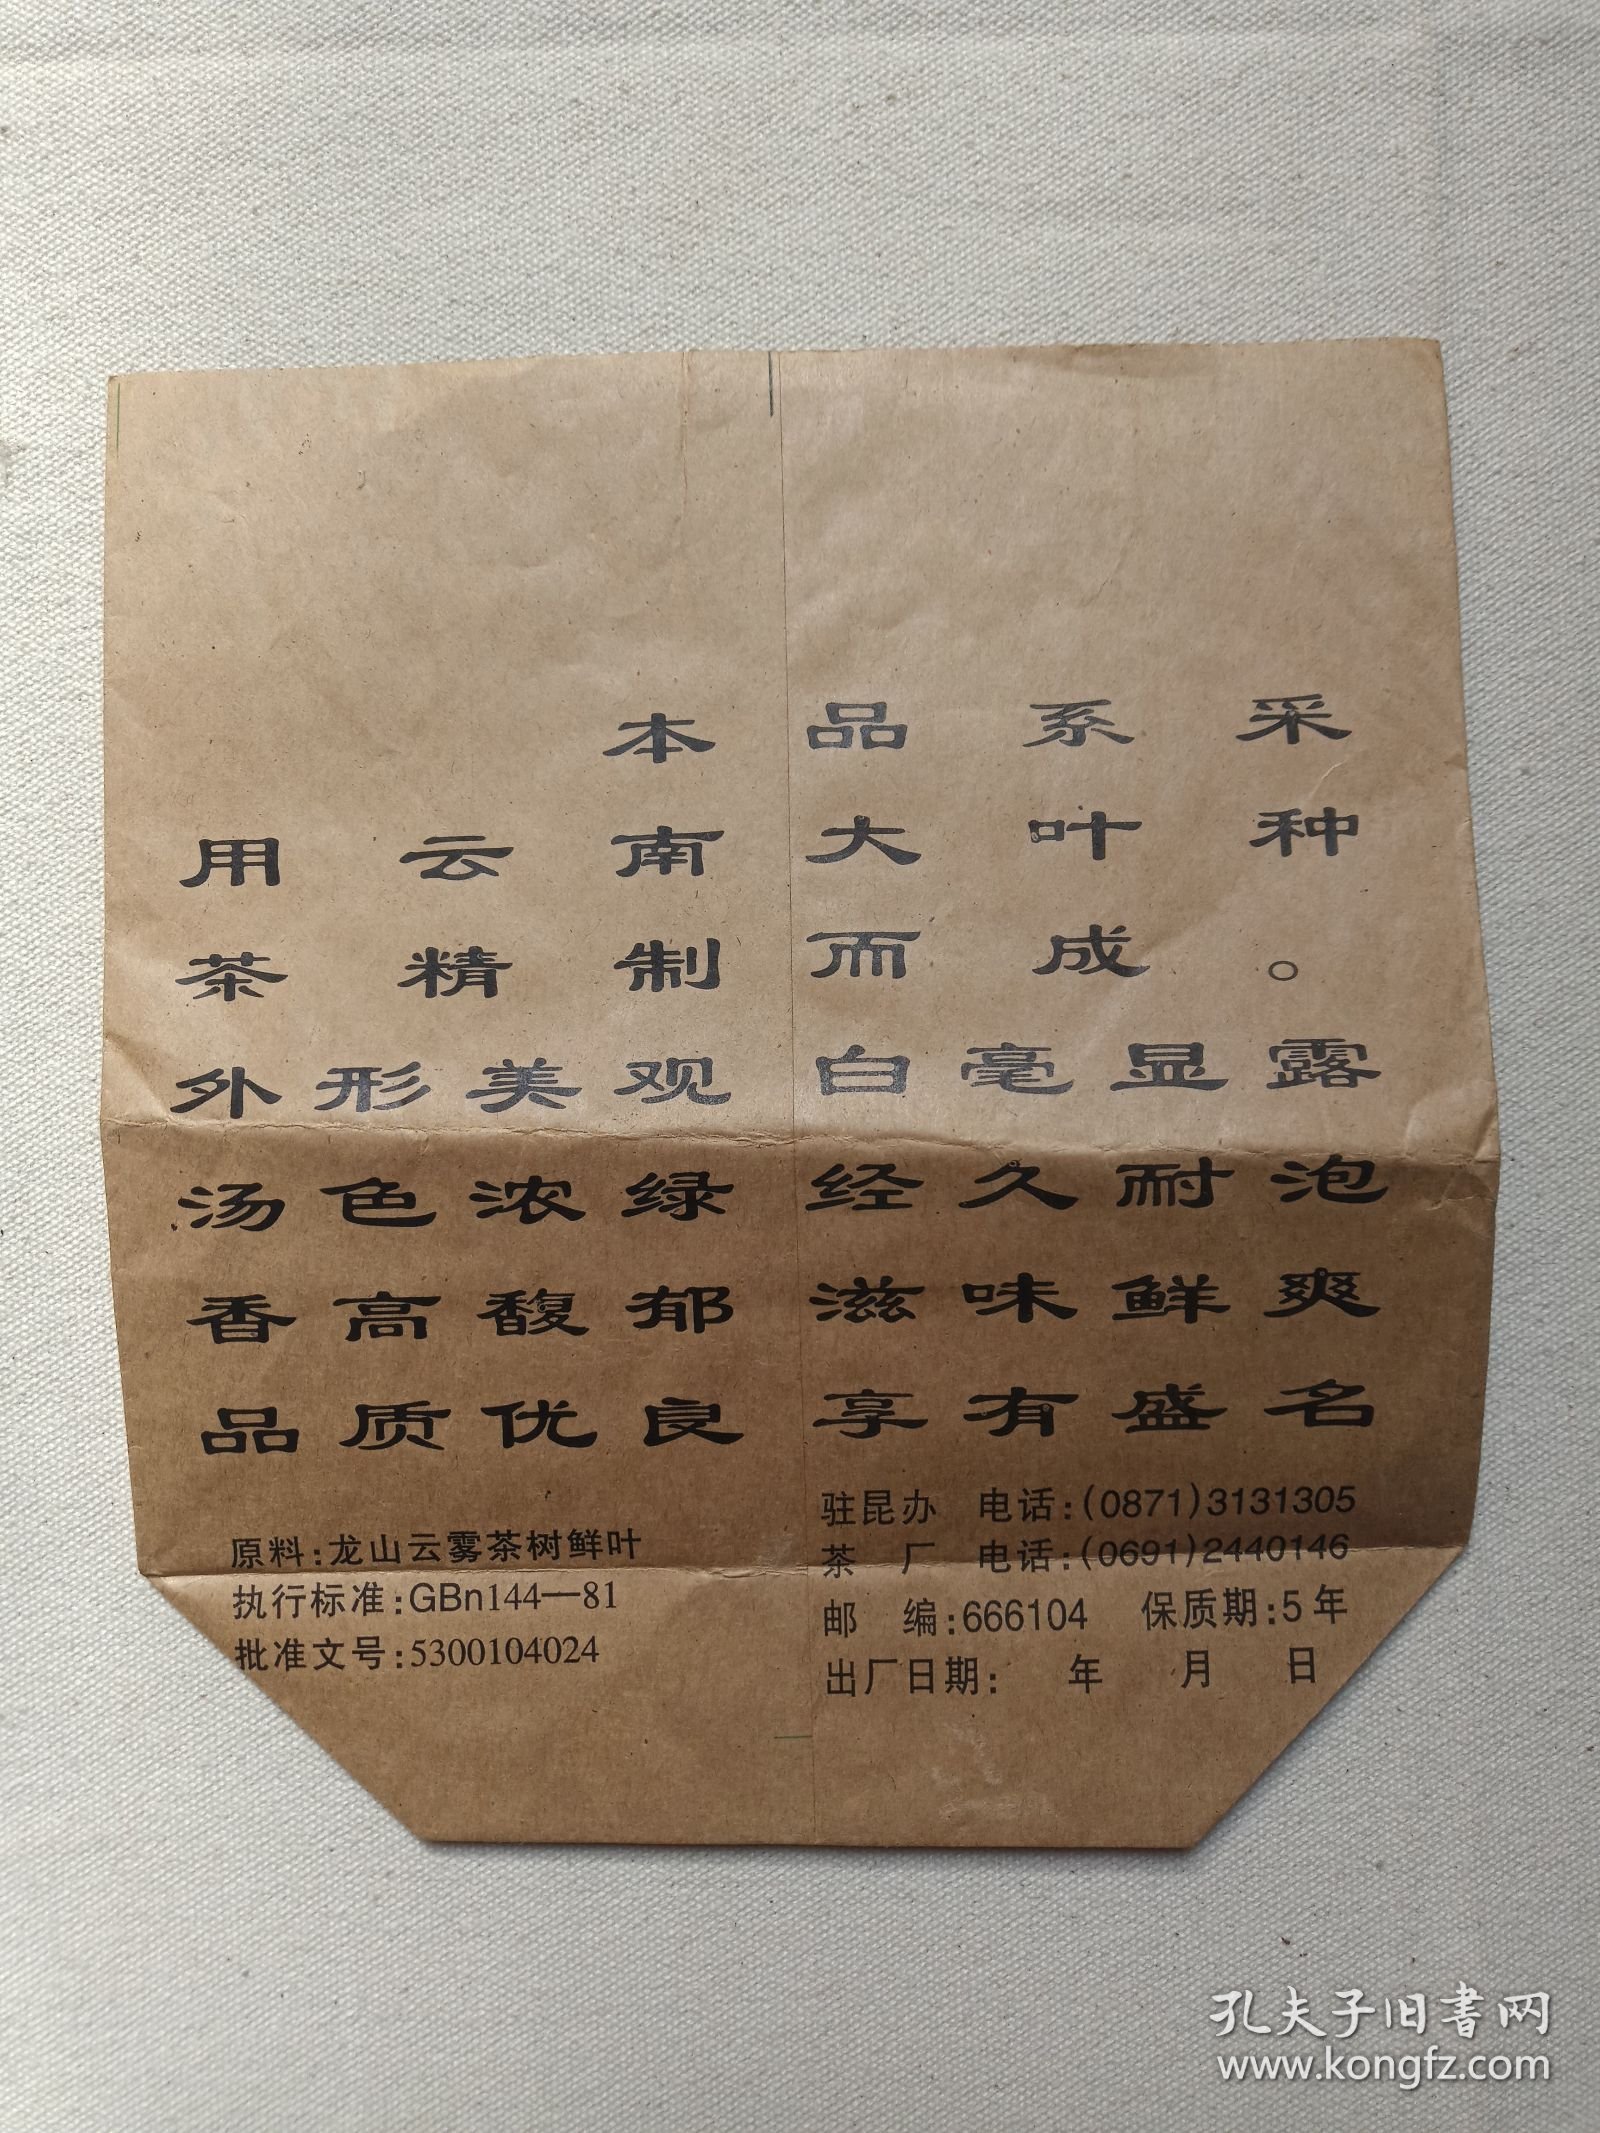 本品系采
用云南大叶种
茶精制而成。
外形美观 白毫显露
汤色浓绿 经久耐泡
香高馥郁 滋味鲜爽
品质优良 享有盛名
原料:龙山云雾茶树鲜叶
执行标准:GBn144—81
批准文号:5300104024
驻昆办 电话:(0871)3131305
茶厂 电话:(0691)2440146
邮编:666104 保质期:5年
出厂日期: 年 月 日
孔夫子旧书网
www.kongfz.com